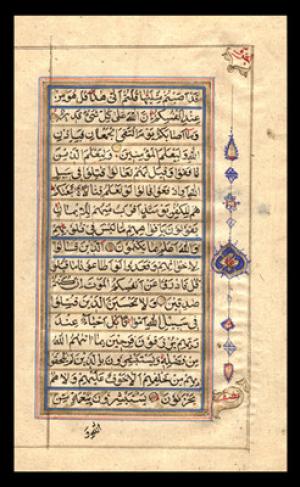 قد اصبتم مثليها قلتم انى هذا قل هو من
عند انفسكم ان الله على كل شئ قدير
وما اصابكم يوم التقى الجمعان فباذن
الله وليعلم المؤمنين وليعلم الذين
نافقوا وقيل لهم تعالوا قاتلوا فى سبيل
الله او ادفعوا قالوا لو نعلم قتالا لاتبعنكم
هم للكفر يومئذ اقرب منهم للايمان
يقولون بافواههم ما ليس فى قلوبهم
والله اعلم بما يكتمون الذين قالوا
لاخوانهم وقعدوا لو اطاعونا ما قتلوا
قل فادرؤا عن انفسكم الموت ان كنتم
صدقين ولا تحسبن الذين قتلوا
فى سبيل الله امواتا بل احياء عند
ربهم يرزقون فرحين بما اتهم الله
من فضله ويستبشرون بالذين لم يلحقوا
بهم من خلفهم الا خوف عليهم ولا هم
يحزنون يستبشرون بنعمة من
الله و